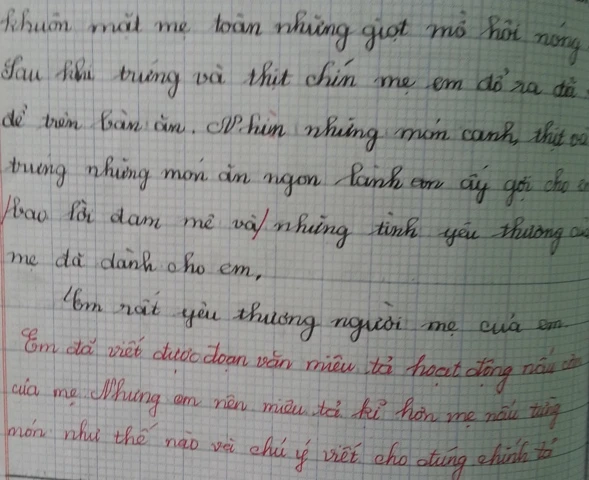 khuôn mặt mẹ toàn những giọt mồ hôi nóng
Sau khi trứng và thịt chín mẹ em đổ ra đĩa
để trên bàn ăn. Nhìn những món canh, thịt và
trứng những món ăn ngon lành em ấy gợi cho em
bao lời đam mê và những tình yêu thương của
mẹ đã dành cho em.
Em rất yêu thương người mẹ của em
Em đã viết được đoạn văn miêu tả hoạt động nấu ăn
của mẹ. Nhưng em nên miêu tả kĩ hơn mẹ nấu từng
món như thế nào và chú ý viết cho đúng chính tả